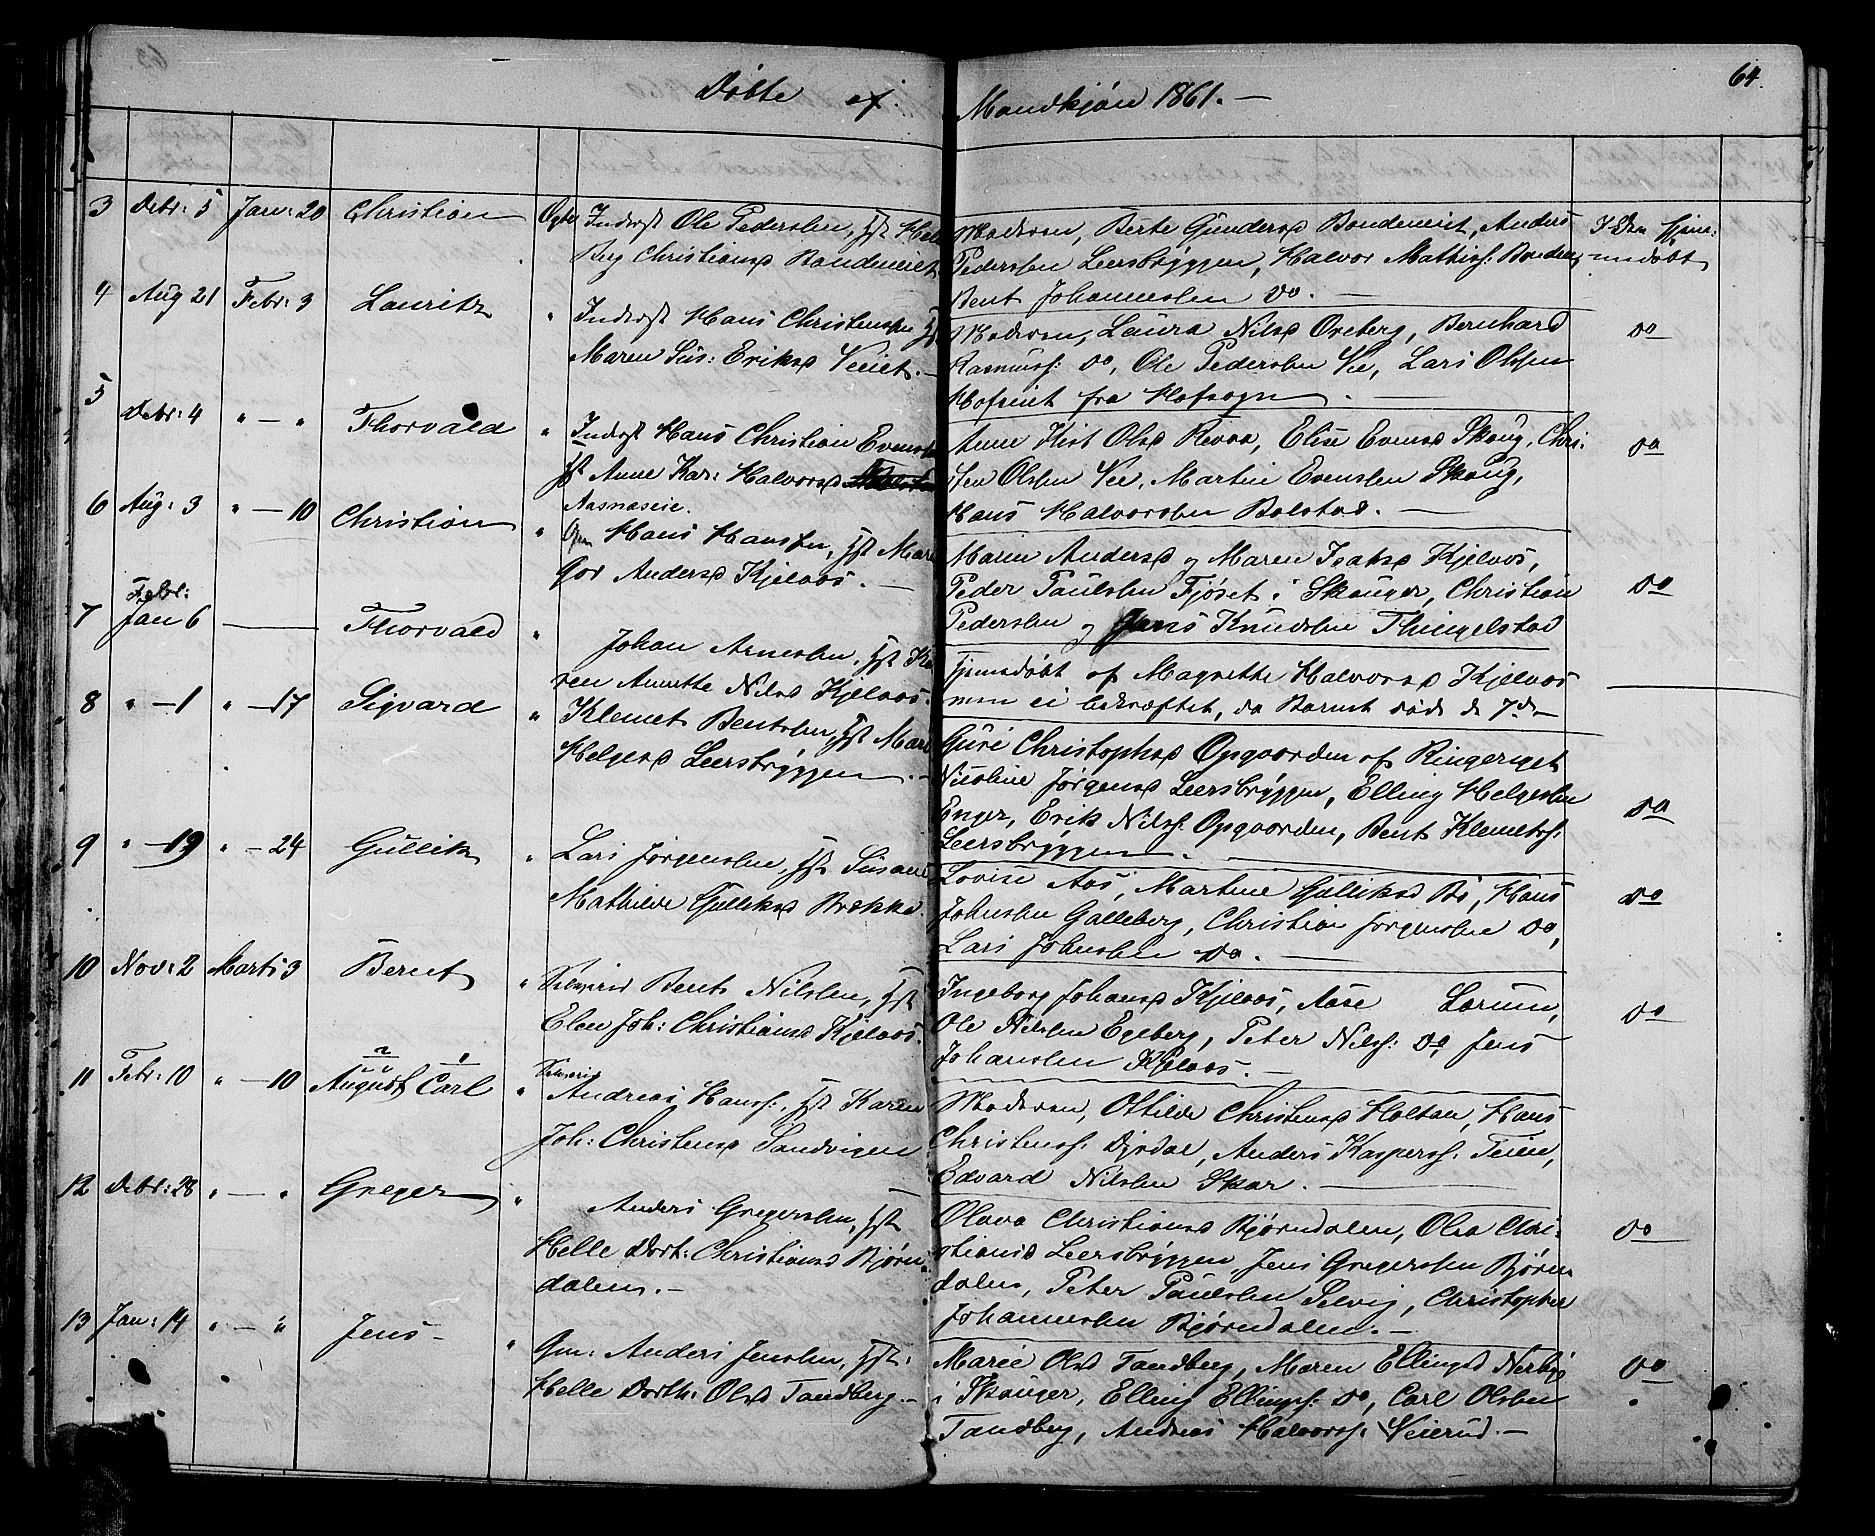 64.
Døbte af Mandkjøn 1861. —
3 Debr: 5 Janr: 20 Christian Ægte Inderst Ole Pedersen, Hst Hel
Berg Christiansd Bondeneiet
Moderen, Berte Gundersd Bondeneiet, Anders
Pedersen Leersbryggen, Halvor Mathiss: Bonden,
Bent Johannessen do. —
I Den hjem:
mdøbt
4 Aug 21 Febr: 3 Lauritz " Inderst Hans Christensen Hst
Maren Sus: Eriksd Veeiet. —
Moderen, Laura Nilsd Oreberg, Bernhard
Rasmuss: do, Ole Pedersen Vee, Lars Olsen
Hofseiet fra Hofsogn. —
do
5 Debr: 4 " — " Thorvald " Inderst Hans Christian Evens
Hst Anne Kar: Halvorsd
Aasnæseie.
Anne Kirst Olsd Revaa, Elise Evensd Skoug, Chri-
sten Olsen Vee, Martin Evensen Skoug,
Hans Halvorsen Bolstad. —
do
6 Aug: 3 " — 10 Christian " Gm Hans Hansen, Hst Mar
Gor Andersd Kjelaas. —
Marin Andersd og Maren Isaksd Kjelaas,
Peder Paulsen Fjøset i Skouger, Christian
Pedersen og Jens Knudsen Thingelstad
do
7 Febr:
Jan 6 — Thorvald " Johan Arnesen, Hst Ka
ren Annette Nilsd Kjelaas.
Hjemedøbt af Magrethe Halvorsd Kjelaas
men ei bekræftet, da Barnet døde d 7d —
8 " — 1 " — 17 Sigvard " Klemet Bentsen, Hst Mar
Helgesd Leersbryggen. —
Guri Christophsd Opgaarden af Ringeriget
Nicoline Jørgensd Leersbryggen, Elling Helgesen
Enger, Erik Nilss: Opgaarden, Bent Klemetss:
Leersbryggen. —
do
9 " — 19 " — 24 Gullik " Lars Jørgensen, Hst Susane
Mathilde Gulliksd Brekke.
Lovise Aas, Martine Gulliksd Bø, Hans
Johnsen Galleberg, Christian Jørgensen do,
Lars Johnsen do. —
do
10 Nov: 2 Marts 3 Bernt " Selveier Bent Nilsen, Hst
Elen Joh: Christiansd Kjelaas.
Ingeborg Johansd Kjelaas, Aase Lorum,
Ole Nilsen Egeberg, Peter Nilss: do, Jens
Johansen Kjelaas. —
do
11 Febr: 10 " — 10 2 1
August Carl " Selveier
Andreas Hanss:, Hst Karen
Joh: Christensd Sandvigen
Moderen, Ottilde Christensd Holtan, Hans
Christenss: Dyrdal, Anders Kasperss: Teien,
Edvard Nilsen Skar. —
12 Debr: 28 " — " Greger " Anders Gregersen, Hst
Helle Dort: Christiansd Bjørn-
dalen. —
Olava Christiansd Bjørndalen, Olea Chri-
stiansd Leersbryggen, Jens Gregersen Bjørn-
dalen, Peter Paulsen Selvig, Christopher
Johannesen Bjørndalen. —
do
13 Jan: 14 " — " Jens — " Gm: Anders Jensen, Hst:
Helle Dorth: Olsd Tandberg. —
Marie Olsd Tandberg, Maren Ellingsd Nerbye
i Skouger, Elling Ellings: do, Carl Olsen
Tandberg, Andreas Halvorss: Veierud. —
do